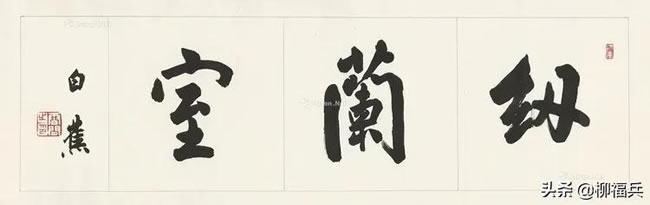 紉蘭室
白蕉
头条 @柳福兵